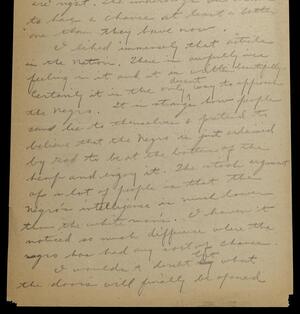 are right. The
to have a chance at least a better
one than they have now.
I liked immensely that article
in the Nation. There is awfully nice
feeling in it and it is written beautifully.
Certainly it is the only decent way to approach
the Negro. It is strange how people
said lie to themselves & pretend to
believe that the Negro is just ordained
by God to be at the bottom of the
heap and enjoy it. The stock argument
of a lot of people is that the
Negro's intelligence is much lower
than the white man's. I haven't
noticed so much difference where the
negro has had any sort of chance.
I wouldn't doubt but what
the doors will finally be opened